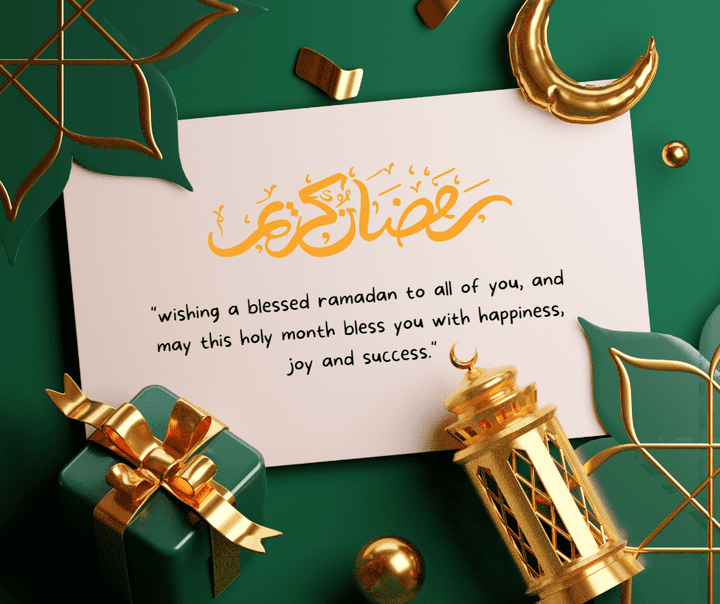 رمضان كريم
"wishing a blessed ramadan to all of you, and
may this holy month bless you with happiness,
joy and success."